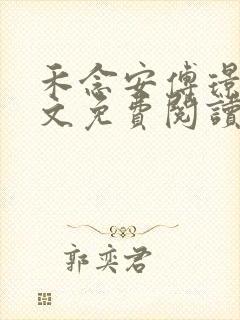 禾念安傅璟
文免費閱讀
郭奕君